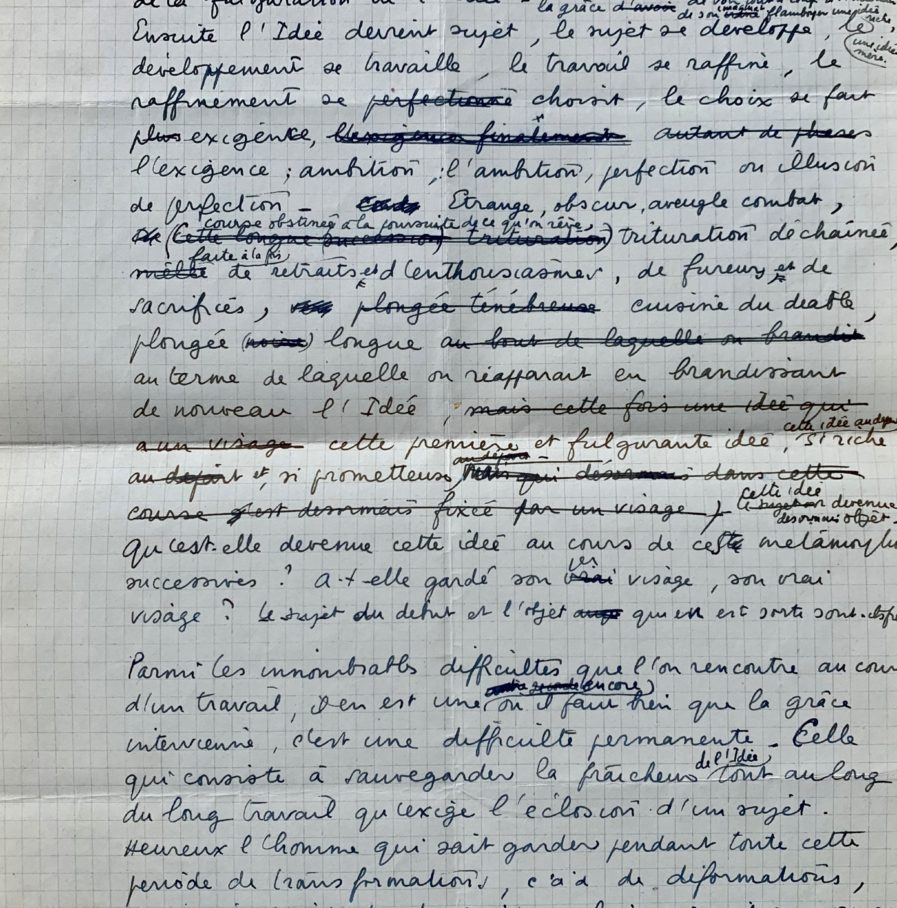 la grâce d'avoir
de son flamboyer une idée
Ensuite l'Idée devient sujet, le sujet se développe, le
une idée mère.
développement se travaille, le travail se raffine, le
raffinement se perfectionne choisit, le choix se fait
plus exigence, l'exigence finalement autant de phases
l'exigence ; ambition, ; l'ambition, perfection ou illusion
de perfection – Etrange, obscur, aveugle combat,
course obstinée à la poursuite de ce qu'on rêve,
(Cette longue succession) trituration) trituration déchaînée,
faite à la fois
mêlée de retraits et d'enthousiasmes, de fureurs et de
sacrifices, plongée ténébreuse cuisine du diable,
plongée (noire) longue au bout de laquelle on brandit
au terme de laquelle on réapparait en brandissant
de nouveau l'Idée, mais cette fois une idée qui
cette idée au dépa
a un visage cette première et fulgurante idée, si riche
au départ –
au départ et, si prometteuse, mais qui désormais dans cette
cette idée
course s'est désormais fixée par un visage, – le sujet devenue
désormais objet –
Qu'est-elle devenue cette idée au cours de ces métamorpho
successives ? a-t-elle gardé son vrai visage, son vrai
visage ? Le sujet du début et l'objet qui en est sorti sont-ils
Parmi les innombrables difficultés que l'on rencontre au cour
seconde encore
d'un travail, il en est une, où il faut bien que la grâce
intervienne, c'est une difficulté permanente – Celle
de l'Idée,
qui consiste à sauvegarder la fraîcheur tout au long
du long travail qu'exige l'éclosion d'un sujet.
Heureux l'homme qui sait garder pendant toute cette
période de transformations, c'à d de déformations,